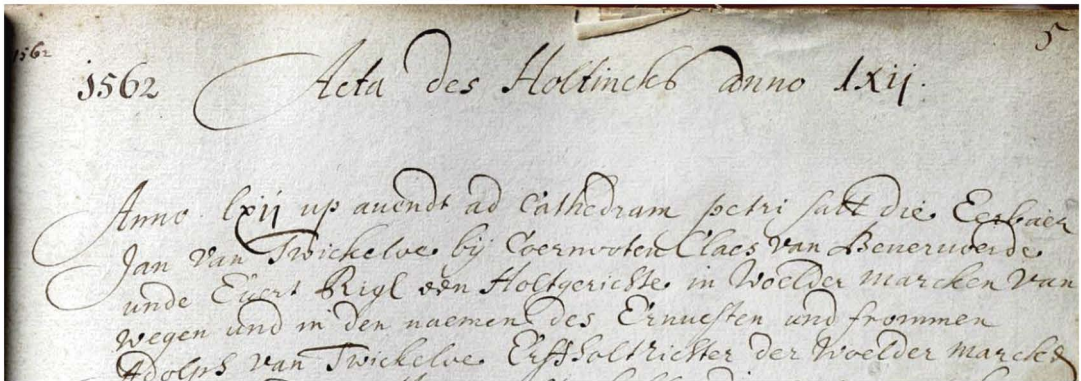 1562
5
1562 Acta des Holtincks anno lxij.
Anno lxij up auendt ad Cathedram petri satt die Eerbaer
Jan van Twickeloe bij Coernooten Claes van Beueruoerde
unde Egert Rigl een Holtgerichte in Woelder marcken van
wegen und in den naemen des Ernuesten und frommen
Adolph van Twickeloe Erffholtrichter der Woelder marcke